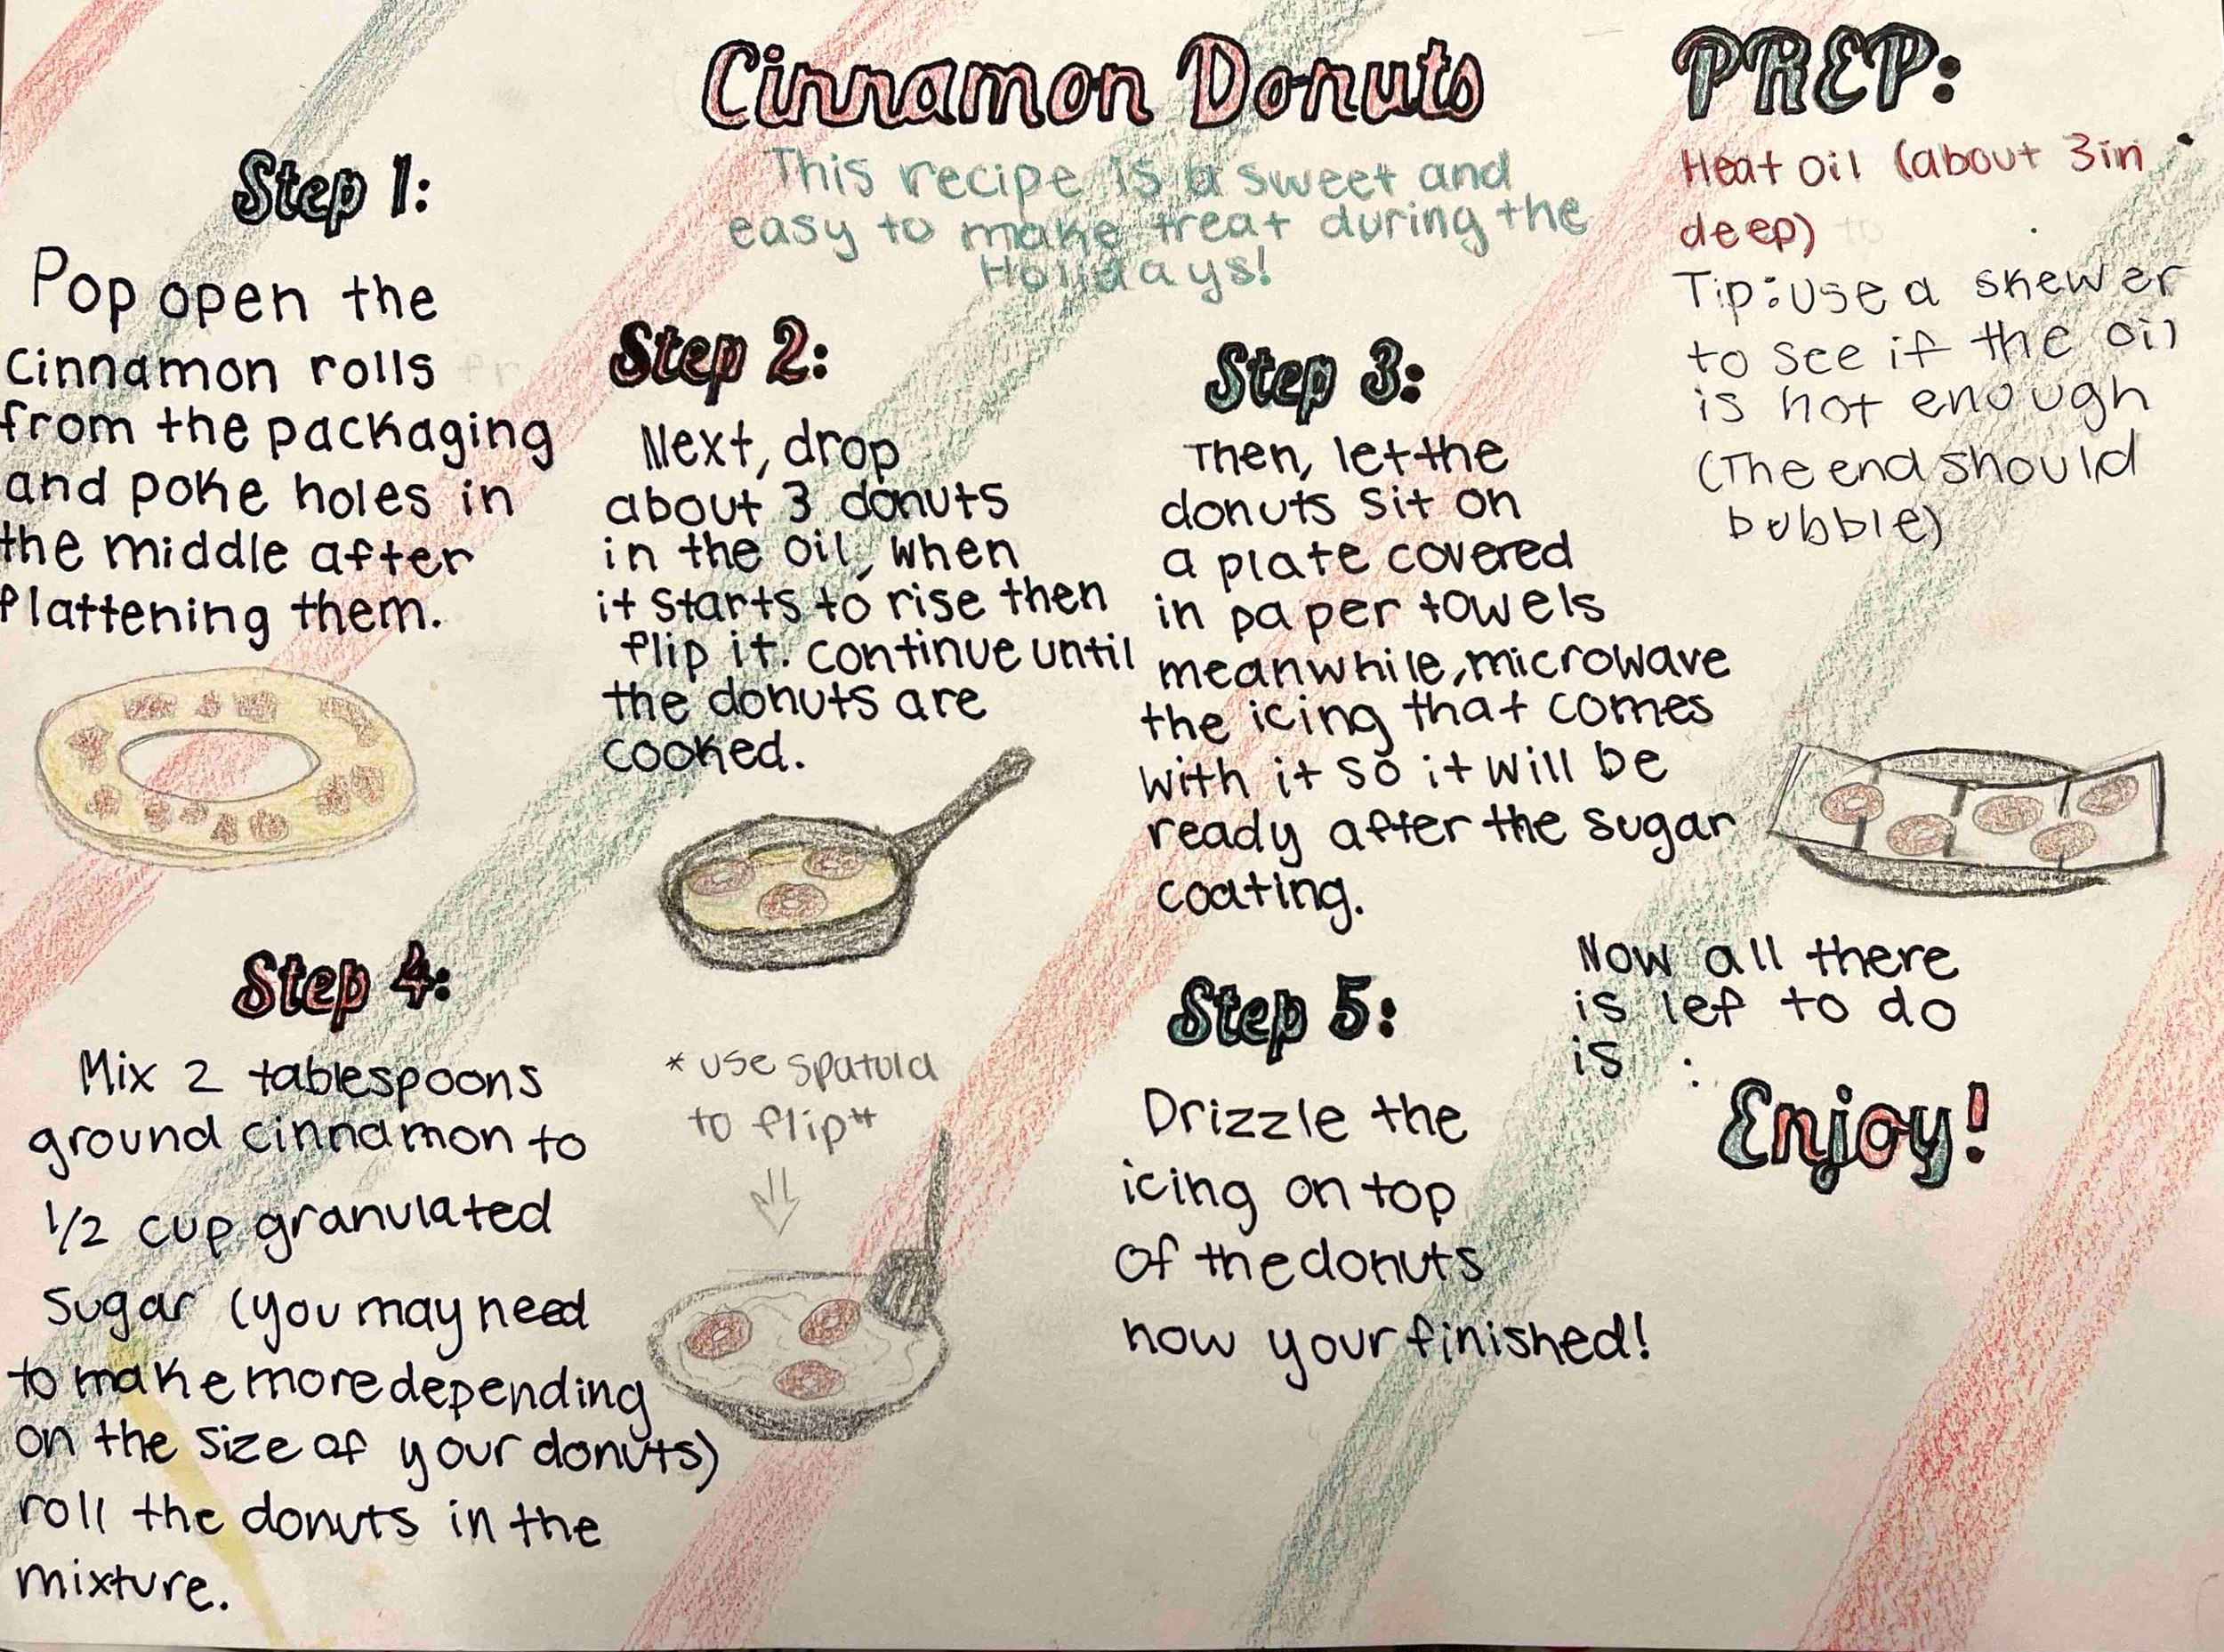 Cinnamon Donuts
This recipe is a sweet and
easy to make treat during the
Holidays!
PREP:
Heat oil (about 3in
deep)
Tip: use a skewer
to see if the oil
is hot enough
(The end should
bubble)
Step 1:
Pop open the
cinnamon rolls
from the packaging
and poke holes in
the middle after
flattening them.
Step 2:
Next, drop
about 3 donuts
in the oil, when
it starts to rise then
flip it. continue until
the donuts are
cooked.
Step 3:
Then, let the
donuts sit on
a plate covered
in paper towels
meanwhile, microwave
the icing that comes
with it so it will be
ready after the sugar
coating.
Step 4:
Mix 2 tablespoons
ground cinnamon to
1/2 cup granulated
sugar (you may need
to make more depending
on the size of your donuts)
roll the donuts in the
mixture.
* use spatula
to flip*
Step 5:
Drizzle the
icing on top
of the donuts
now your finished!
Now all there
is lef to do
is :
Enjoy!